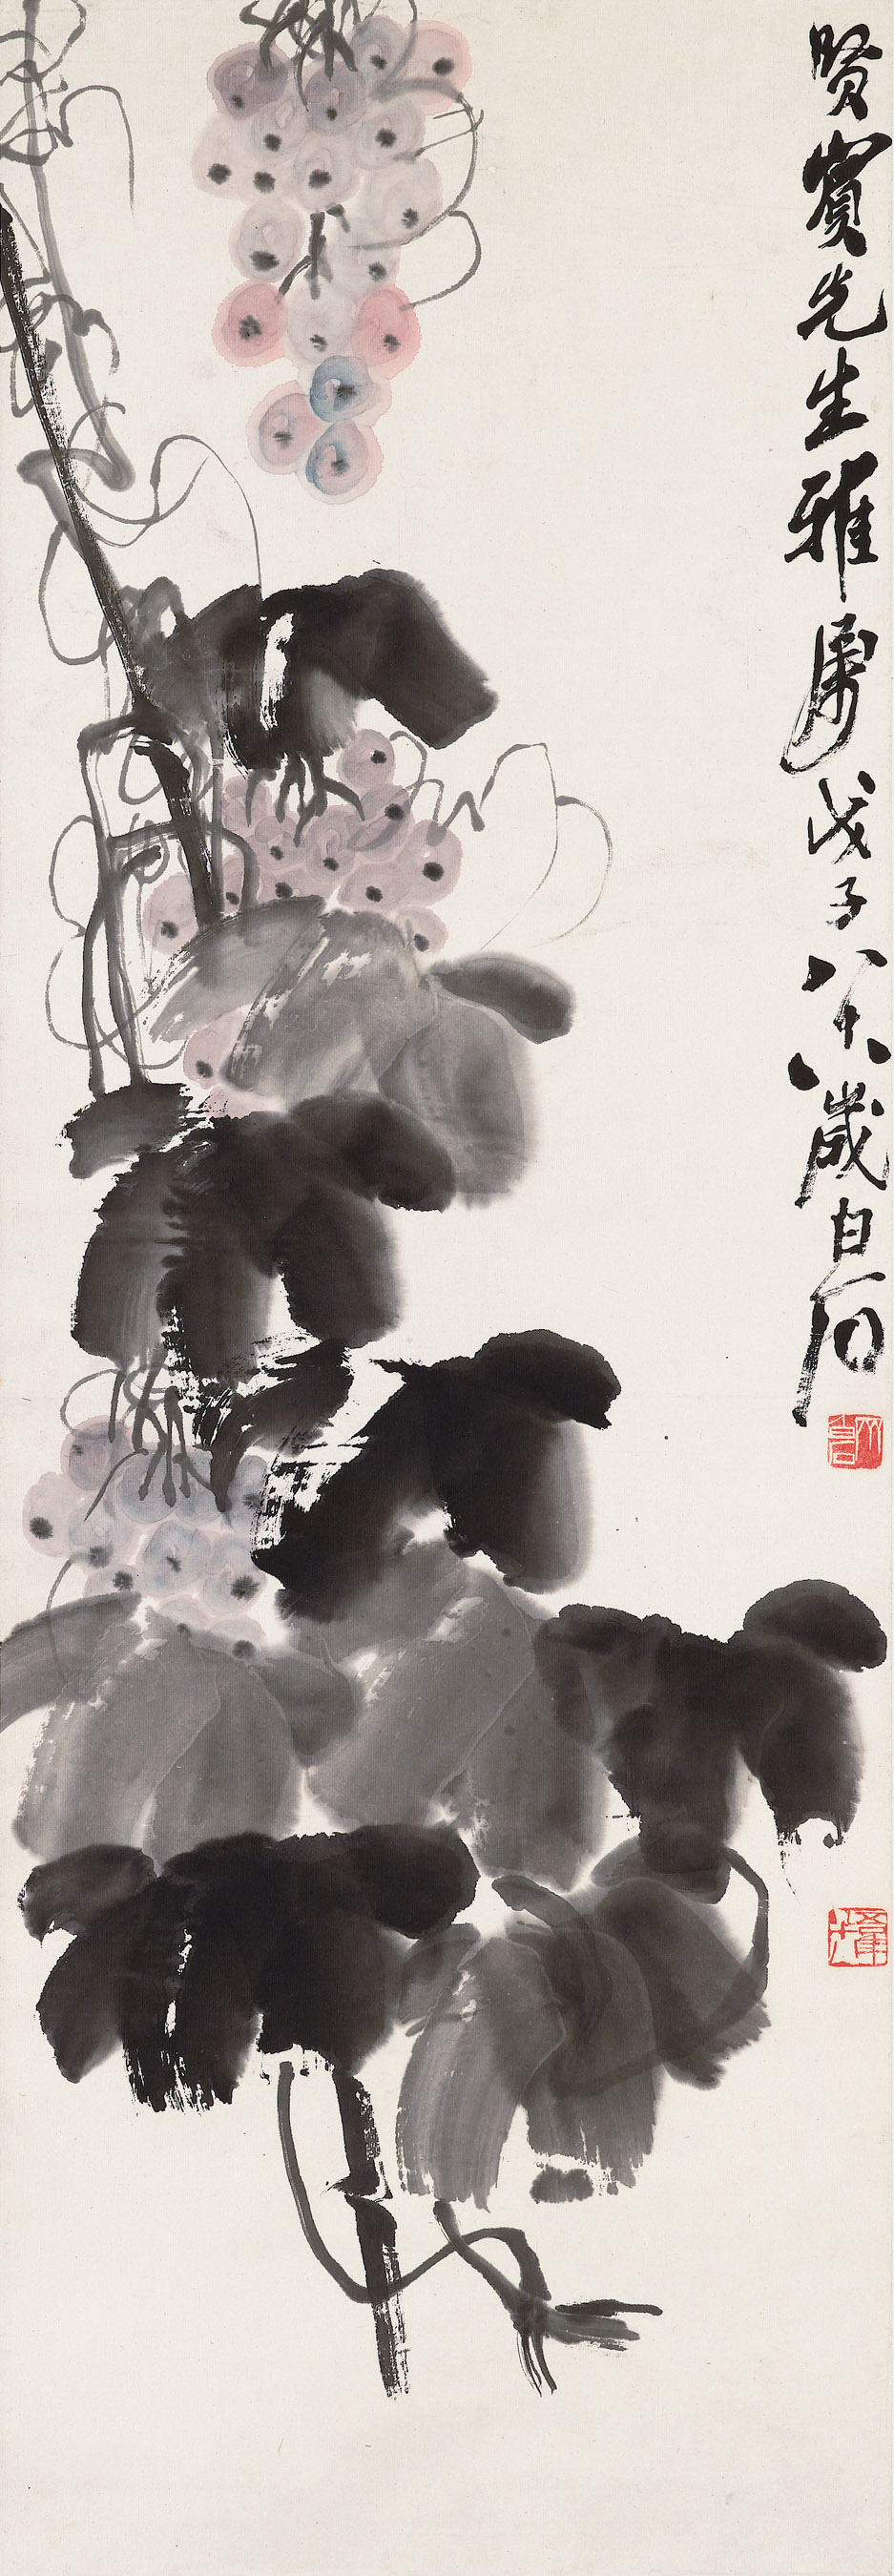 賢賓先生雅屬戊子八十八歲白石